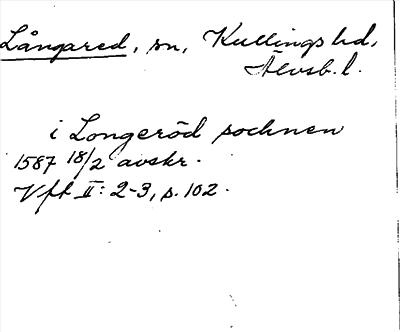 Långared, sn, Kullings hd,
Älvsb. l.
i Longeröd socknen
1587 18/2 avskr.
Vft II: 2-3, s. 102.